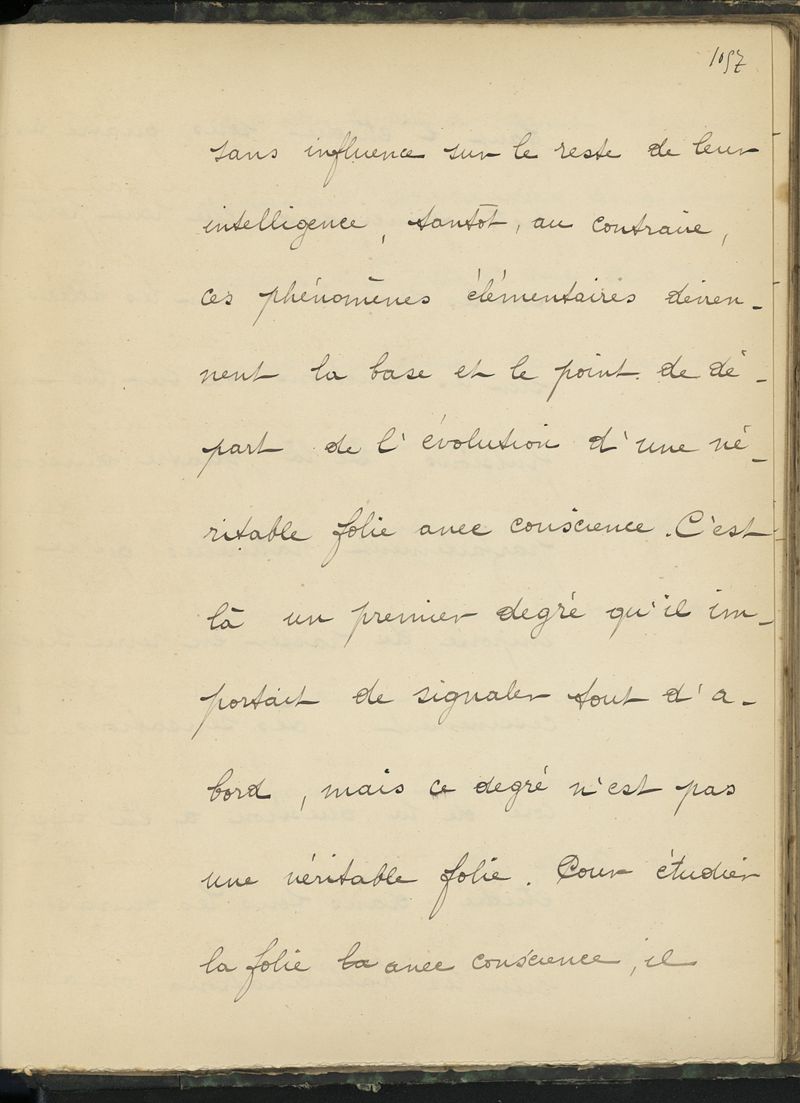 1057
sans influence sur le reste de leur
intelligence, tantôt, au contraire,
ces phénomènes élémentaires devien-
nent la base et le point de dé-
part de l'évolution d'une vé-
ritable folie avec conscience. C'est
là un premier degré qu'il im-
portait de signaler tout d'a-
bord, mais ce degré n'est pas
une véritable folie. Pour étudier
la folie la avec conscience, il